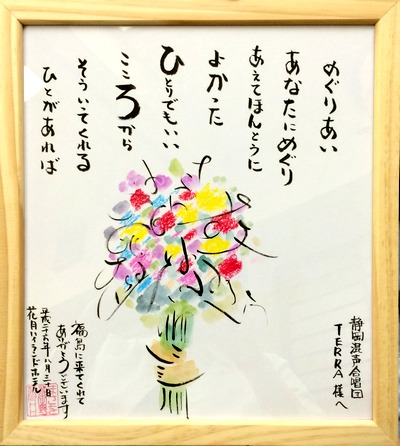 めぐりあい
あなたにめぐり
あえてほんとうに
よかった
ひとりでもいい
こころから
そういってくれる
ひとがあれば
静岡混声合唱団
TERRA 様へ
福島に来てくれて
ありがとうございます
平成二十六年八月三十日
花月ハイランドホテル